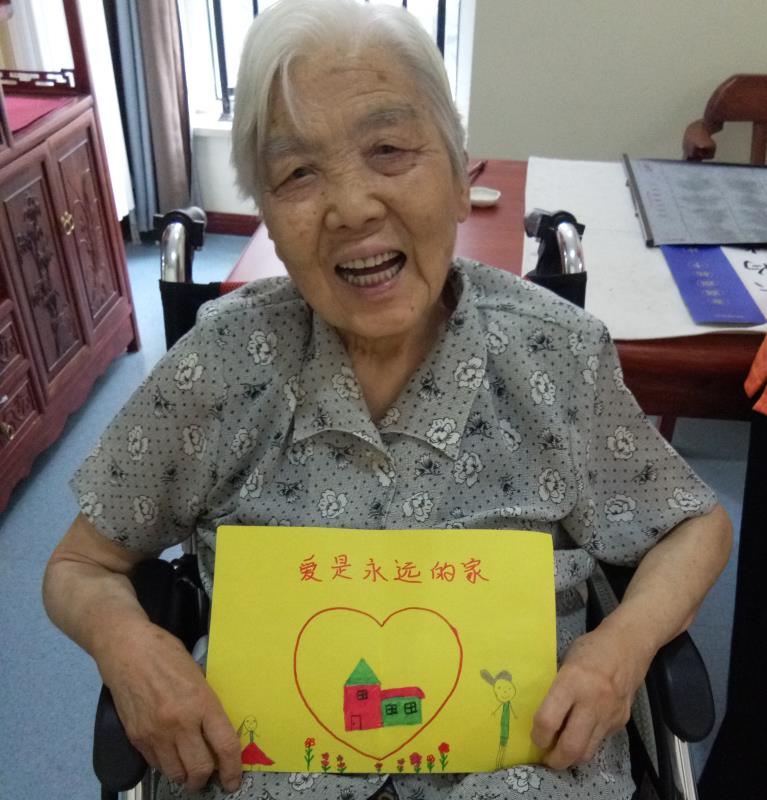 爱是永远的家